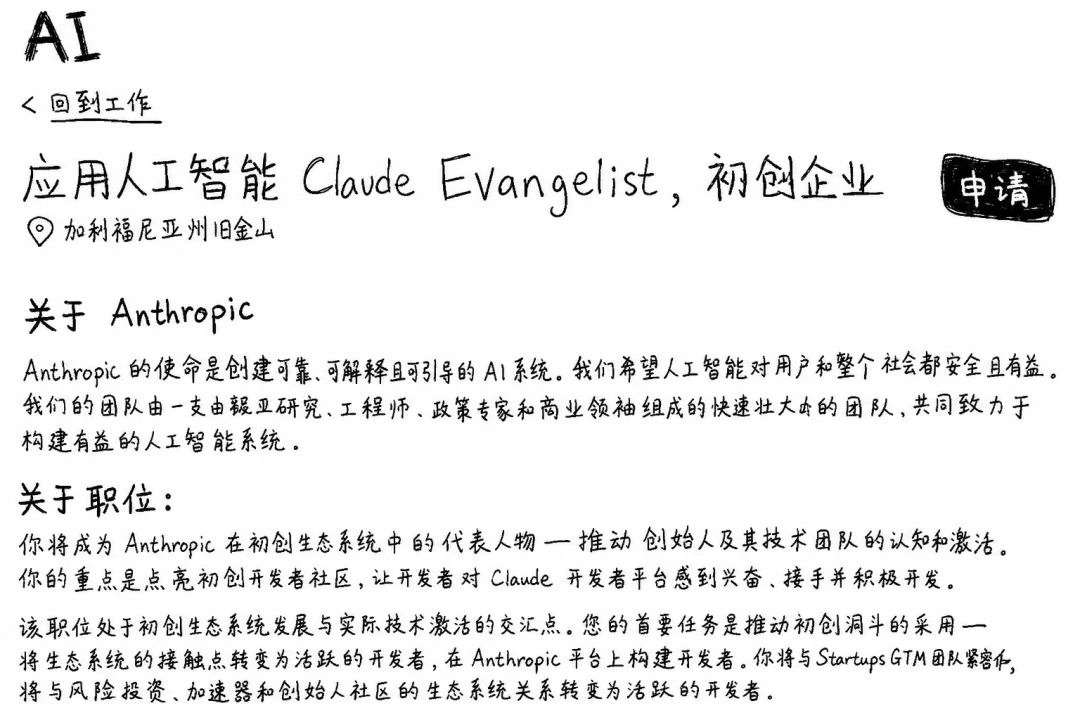 AI
< 回到工作
应用人工智能 Claude Evangelist, 初创企业
申请
加利福尼亚州旧金山
关于 Anthropic
Anthropic 的使命是创建可靠、可解释且可引导的 AI 系统。我们希望人工智能对用户和整个社会都安全且有益。
我们的团队由一支由 研究、工程师、政策专家和商业领袖组成的快速壮大 的团队,共同致力于
构建有益的人工智能系统。
关于职位:
你将成为 Anthropic 在初创生态系统中的代表人物 — 推动创始人及其技术团队的认知和激活。
你的重点是点亮初创开发者社区,让开发者对 Claude 开发者平台感到兴奋、接手并积极开发。
该职位处于初创生态系统发展与实际技术激活的交汇点。您的首要任务是推动初创漏斗的采用 —
将生态系统的接触点转变为活跃的开发者,在 Anthropic 平台上构建开发者。你将与 Startups GTM 团队紧密
将与风险投资、加速器和创始人社区的生态系统关系转变为活跃的开发者。